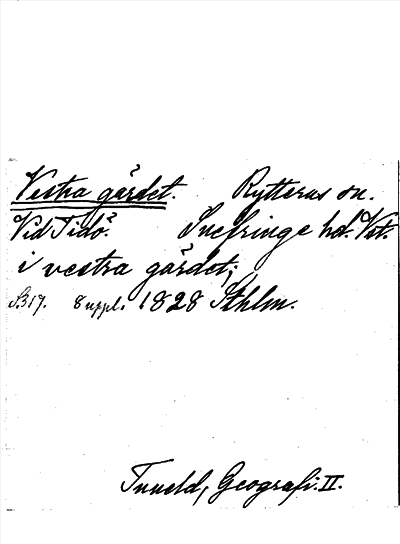 Vestra gärdet. Rytterns sn.
Vid Tidö. Snefringe hd. Vst.
i vestra gärdet;
S. 317. 8 uppl. 1828 Sthlm.
Tuneld, Geografi. II.